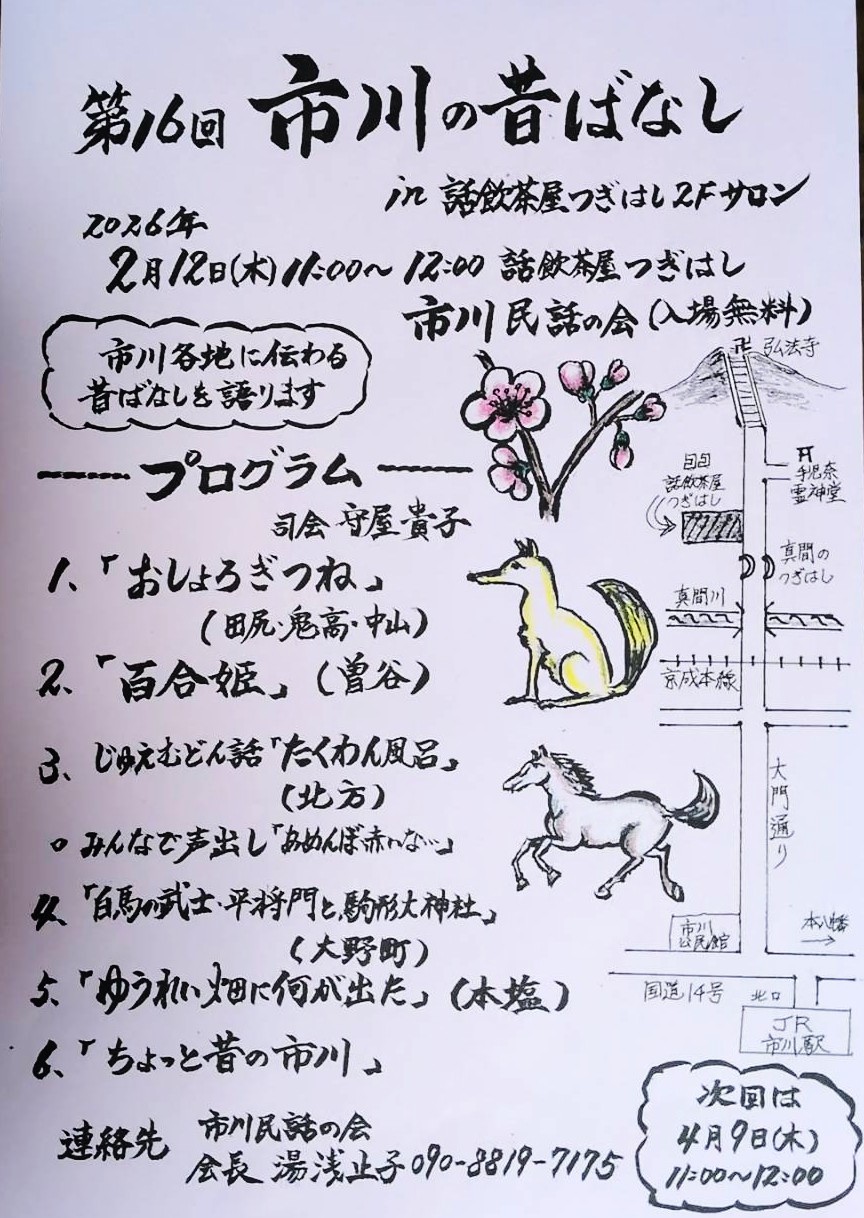 第16回 市川の昔ばなし
in 話飲茶屋つぎはし2Fサロン
2026年
2月12日(木)11:00〜12:00 話飲茶屋つぎはし
市川民話の会(入場無料)
市川各地に伝わる
昔ばなしを語ります
プログラム
司会 守屋貴子
1、「おしょろぎつね」
(田尻・鬼高・中山)
2、「百合姫」(曽谷)
3、じゅえむどん話「たくわん風呂」
(北方)
○みんなで声出し「あめんぼ赤いな…」
4、「白馬の武士・平将門と駒形大神社」
(大野町)
5、「ゆうれい畑に何が出た」(本塩)
6、「ちょっと昔の市川」
連絡先 市川民話の会
会長 湯浅止子 090-8819-7175
卍 弘法寺
手児奈
霊神堂
話飲茶屋
つぎはし
真間の
つぎはし
真間川
京成本線
大門通り
市川
公民館
本八幡
国道14号
北口
JR
市川駅
次回は
4月9日(木)
11:00〜12:00